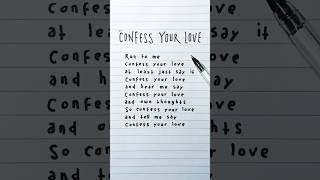 CONFESS YOUR LOVE
Run to me
Confess your love
at least just say it
Confess your love
and hear me say
Confess your love
and own thoughts
So confess your love
and tell me say
Confess your love